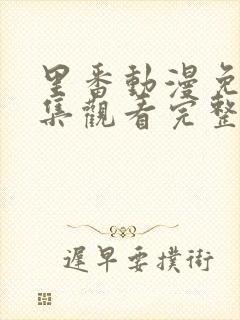 里番動漫免
集觀看完整
遲早要撲街